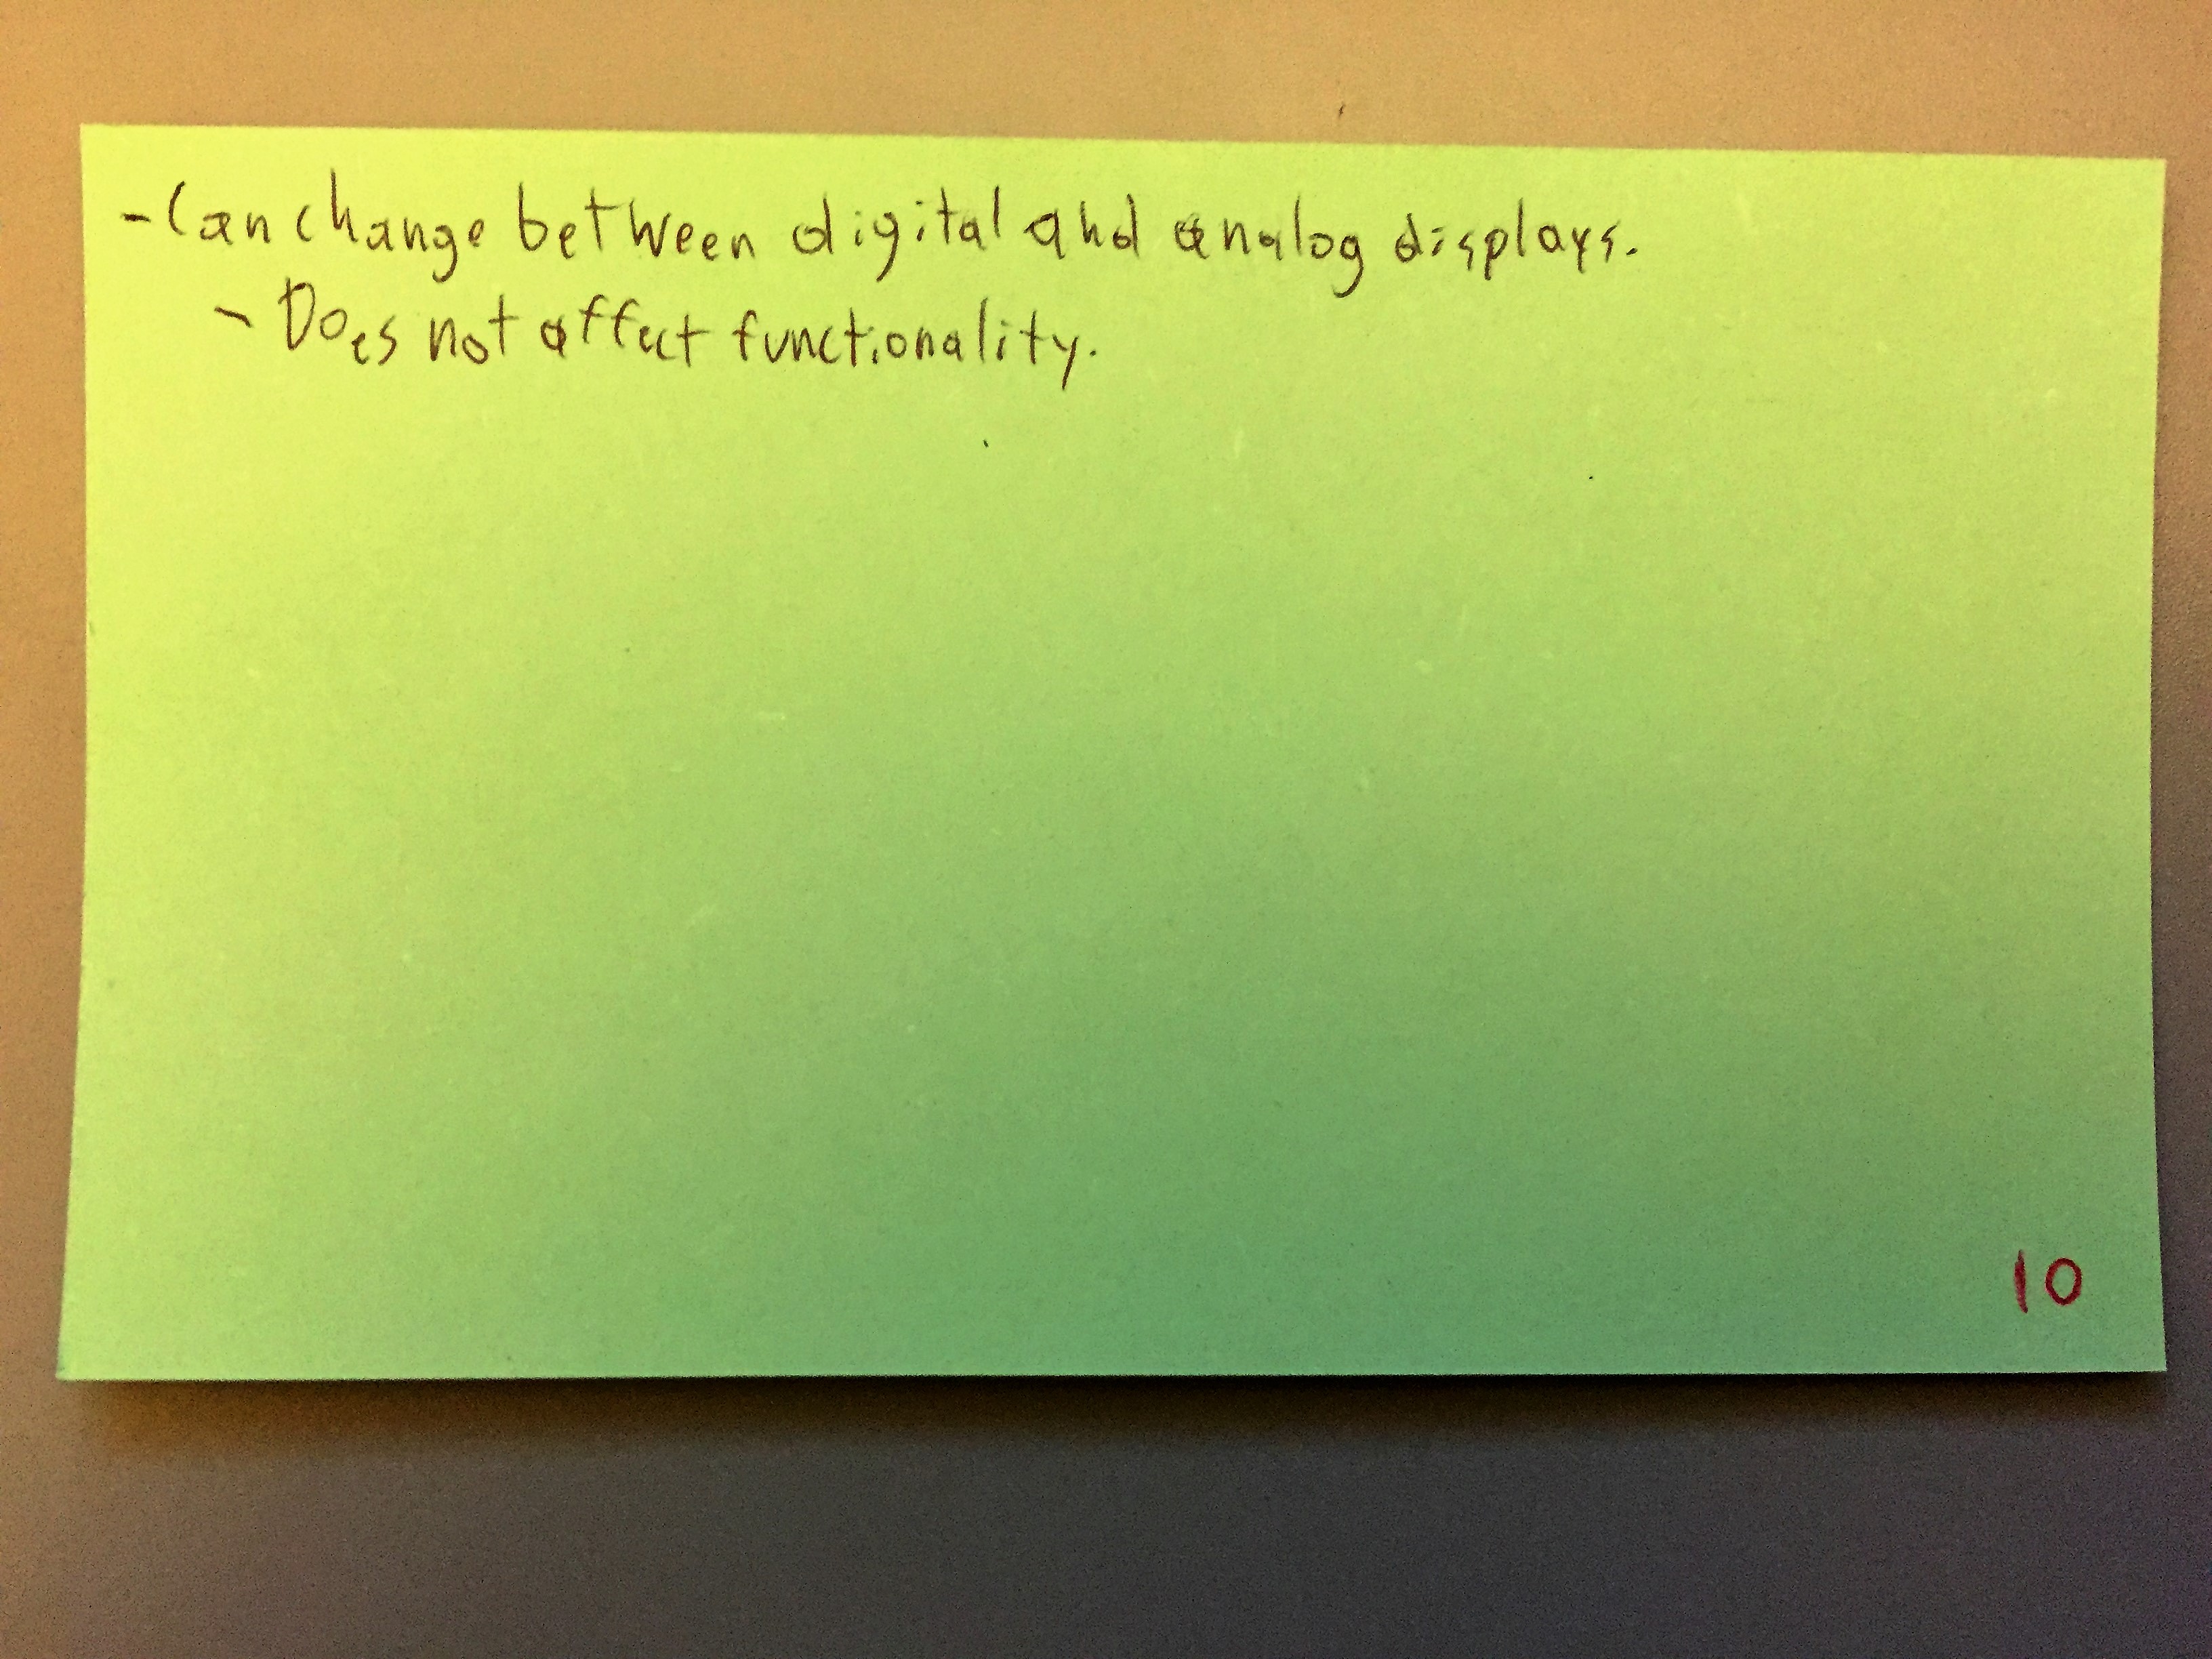 - Can change between digital and analog displays.
- Does not affect functionality.
10